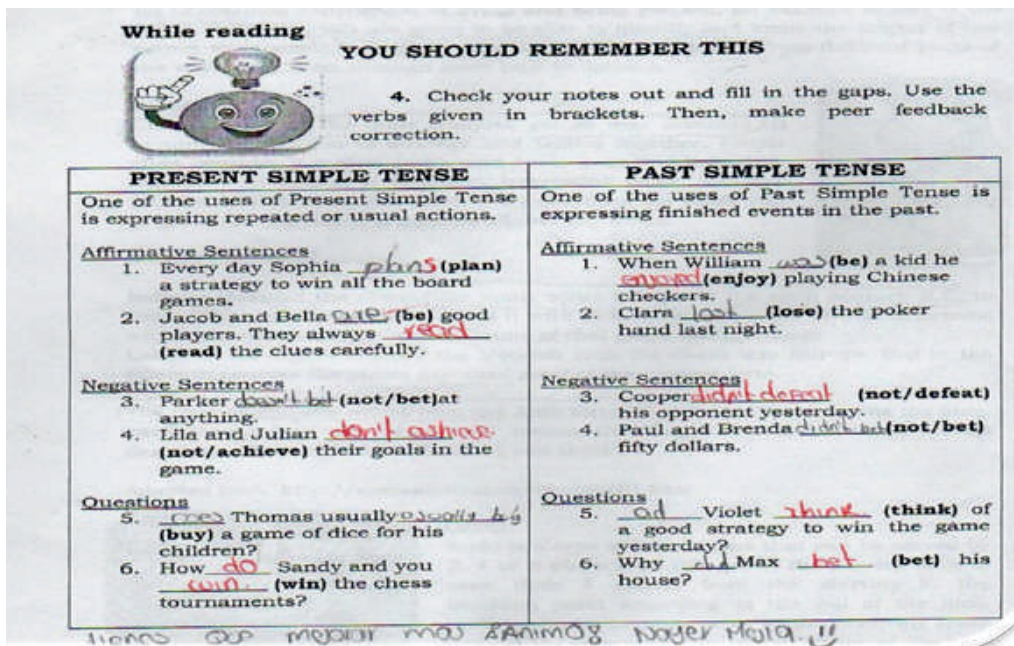 While reading
YOU SHOULD REMEMBER THIS
4. Check your notes out and fill in the gaps. Use the
verbs given in brackets. Then, make peer feedback
correction.
PRESENT SIMPLE TENSE
One of the uses of Present Simple Tense
is expressing repeated or usual actions.
Affirmative Sentences
1. Every day Sophia plans (plan)
a strategy to win all the board
games.
2. Jacob and Bella are (be) good
players. They always read
(read) the clues carefully.
Negative Sentences
3. Parker doesn't bet (not/bet)at
anything.
4. Lila and Julian don't achieve
(not/achieve) their goals in the
game.
Questions
5. Does Thomas usually usually buy
(buy) a game of dice for his
children?
6. How do Sandy and you
win. (win) the chess
tournaments?
PAST SIMPLE TENSE
One of the uses of Past Simple Tense is
expressing finished events in the past.
Affirmative Sentences
1. When William was (be) a kid he
enjoyed (enjoy) playing Chinese
checkers.
2. Clara lost (lose) the poker
hand last night.
Negative Sentences
3. Cooper didn't defeat (not/defeat)
his opponent yesterday.
4. Paul and Brenda didn't bet (not/bet)
fifty dollars.
Questions
5. Violet think (think) of
a good strategy to win the game
yesterday?
6. Why did Max bet (bet) his
house?
tienes que mejorar mas Animos